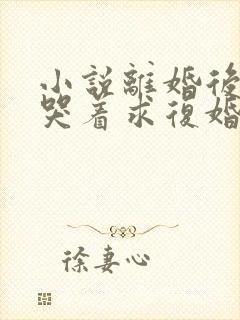 小説離婚後
哭着求復婚
徐妻心